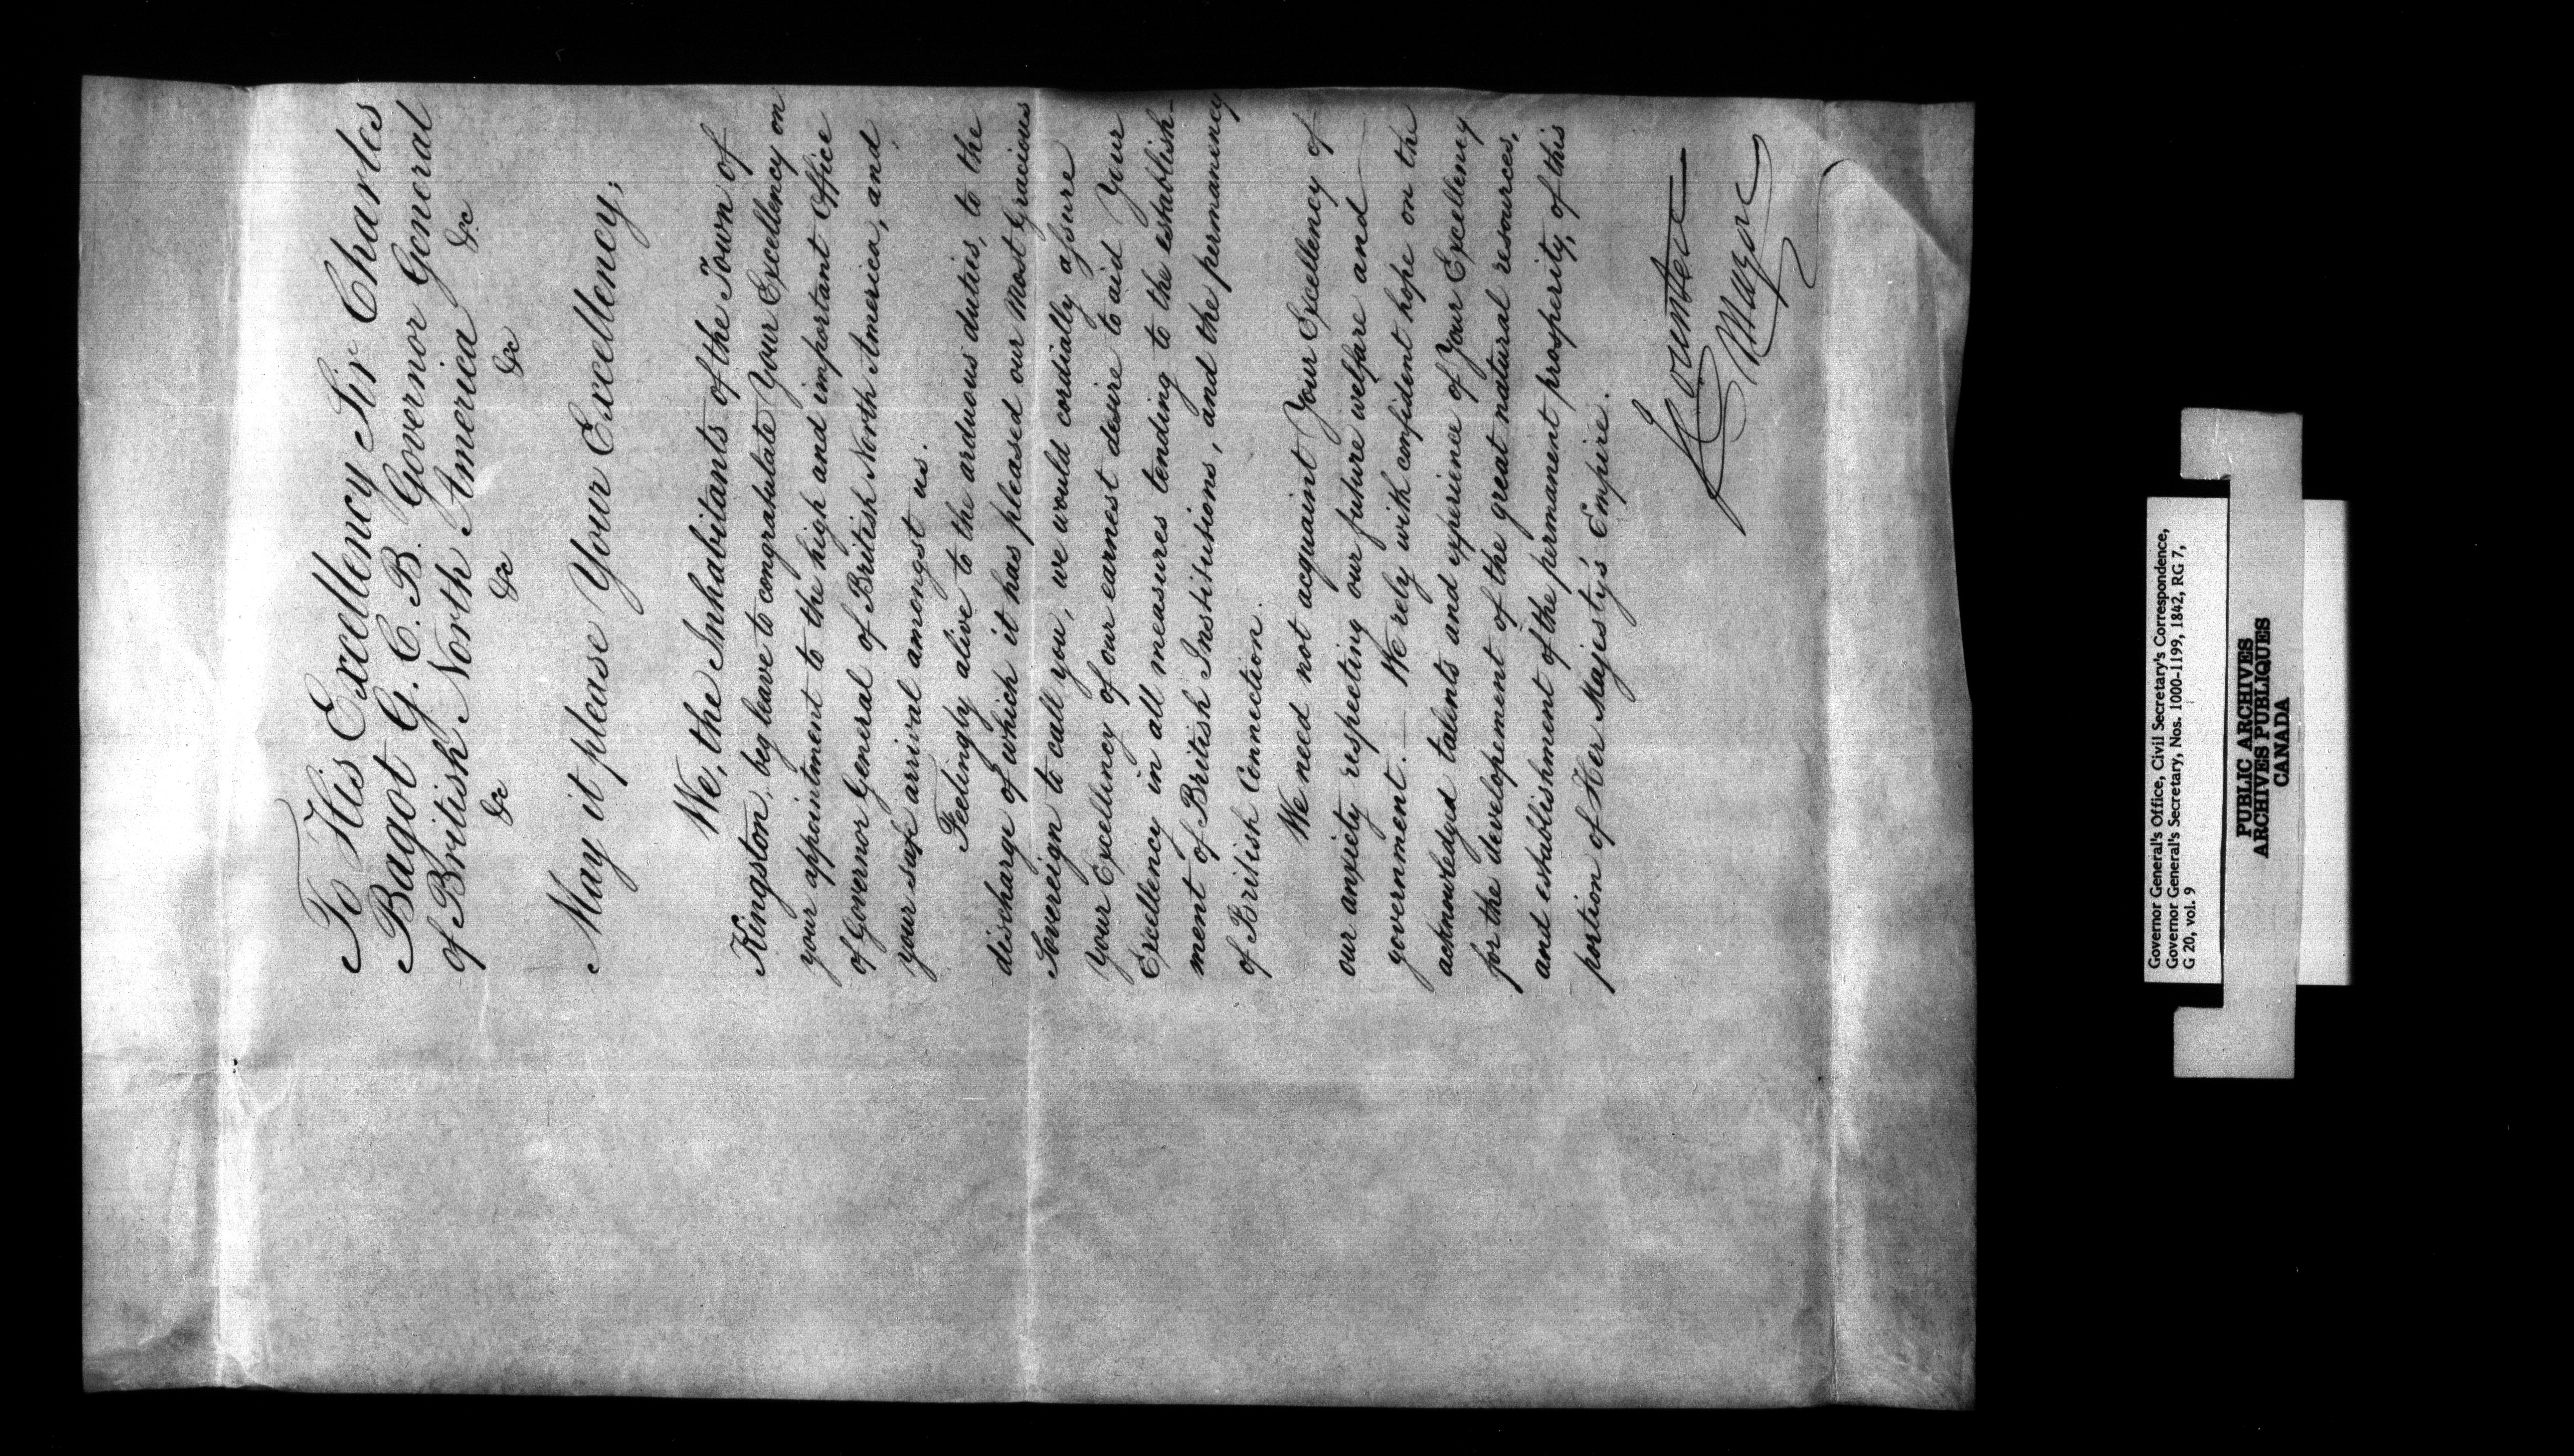 To His Excellency Sir Charles
Bagot G. C. B. Governor General
of British North America
&c &c &c &c
May it please Your Excellency;
We, the Inhabitants of the Town of
Kingston, beg leave to congratulate Your Excellency on
your appointment to the high and important Office
of Governor General of British North America, and
your safe arrival amongst us.
Feelingly alive to the arduous duties, to the
discharge of which it has pleased our Most Gracious
Sovereign to call you, we would cordially assure
Your Excellency of our earnest desire to aid Your
Excellency in all measures tending to the establish-
ment of British Institutions, and the permanency
of British Connection.
We need not acquaint Your Excellency of
our anxiety respecting our future welfare and
government. — We rely with confident hope on the
acknowledged talents and experience of Your Excellency
for the developement of the great natural resources,
and establishment of the permanent prosperity, of this
portion of Her Majesty's Empire.
Counter
Mayor
Governor General's Office, Civil Secretary's Correspondence,
Governor General's Secretary, Nos. 1000-1199, 1842, RG 7,
G 20, vol. 9
PUBLIC ARCHIVES
ARCHIVES PUBLIQUES
CANADA